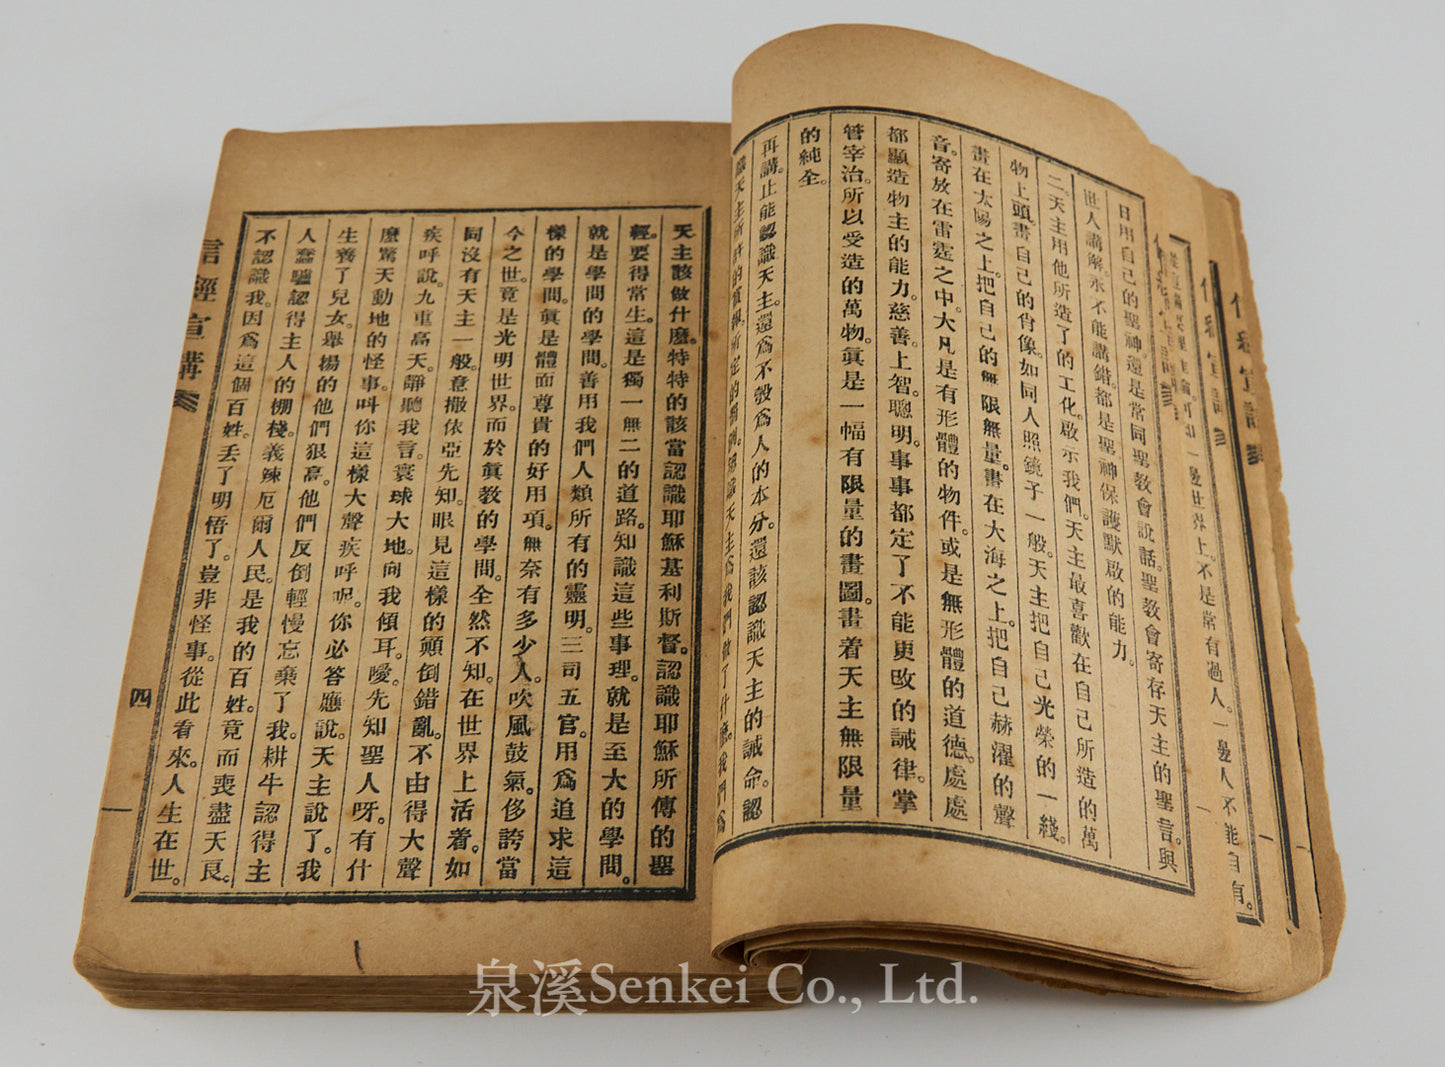 日用自己的聖神還是常同聖教會說話。聖教會寄存天主的聖言。與
世人講解。永不能講錯。都是聖神保護默啟的能力。
二。天主用他所造了的工化。啟示我們。天主最喜歡在自己所造的萬
物上頭。畫自己的肖像。如同人照鏡子一般。天主把自己光榮的一綫。
畫在太陽之上。把自己的無限無量。畫在大海之上。把自己赫濯的聲
音。寄放在雷霆之中。大凡是有形體的物件。或是無形體的道德。處處
都顯造物主的能力。慈善。上智。聰明。事事都定了不能更改的誡律。掌
管宰治。所以受造的萬物。眞是一幅有限量的畫圖。畫着天主無限量
的純全。
再講。止能認識天主。還爲不彀爲人的本分。還該認識天主的誡命。認
識天主所許的
天主該做什麼。特特的該當認識耶穌基利斯督。認識耶穌所傳的聖
經。要得常生。這是獨一無二的道路。知識這些事理。就是至大的學問。
就是學問的學問。善用我們人類所有的靈明。三司五官。用爲追求這
樣的學問。眞是體面尊貴的好用項。無奈有多少人。吹風鼓氣。侈誇當
今之世。竟是光明世界。而於眞教的學問。全然不知。在世界上活着。如
同沒有天主一般。意撒依亞先知。眼見這樣的顚倒錯亂。不由得大聲
疾呼說。九重高天。靜聽我言。寰球大地。向我傾耳。噯。先知聖人呀。有什
麼驚天動地的怪事。叫你這樣大聲疾呼呢。你必答應說。天主說了。我
生養了兒女。舉揚的他們狠高。他們反倒輕慢忘棄了我。耕牛認得主
人。蠢驢認得主人的棚棧。義辣厄爾人民。是我的百姓。竟而喪盡天良。
不認識我。因爲這個百姓。丟了明悟了。豈非怪事。從此看來。人生在世。
信經宣講
四
泉溪Senkei Co., Ltd.